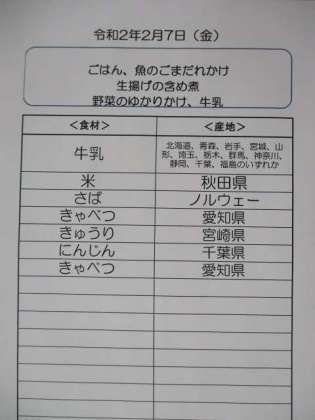 令和2年2月7日（金）
ごはん、魚のごまだれかけ
生揚げの含め煮
野菜のゆかりかけ、牛乳
＜食材＞ ＜産地＞
牛乳 北海道、青森、岩手、宮城、山
形、埼玉、栃木、群馬、神奈川、
静岡、千葉、福島のいずれか
米 秋田県
さば ノルウェー
きゃべつ 愛知県
きゅうり 宮崎県
にんじん 千葉県
きゃべつ 愛知県